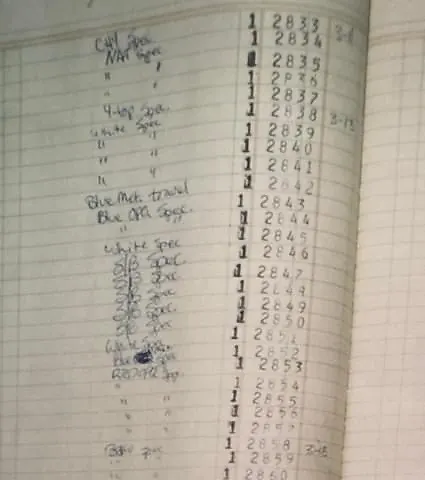 1 2833
CHY Spec 1 2834 3-8
NAT Spec 1 2835
" " 1 2836
" " 1 2837
4-top Spec. 1 2838 3-13
White Spec 1 2839
" " 1 2840
" " 1 2841
" " 1 2842
Blue Met. travel 1 2843
Blue OPQ Spec. 1 2844
" " 1 2845
White Spec 1 2846
S/B Spec. 1 2847
S/B Spec. 1 2848
S/B Spec. 1 2849
S/B Spec 1 2850
White Spec 1 2851
Blue Spec 1 2852
Red OPQ Spec. 1 2853
" 1 2854
" " 1 2855
" " 1 2856
" " 1 2857
Spec 1 2858
" " 1 2859
" " 1 2860